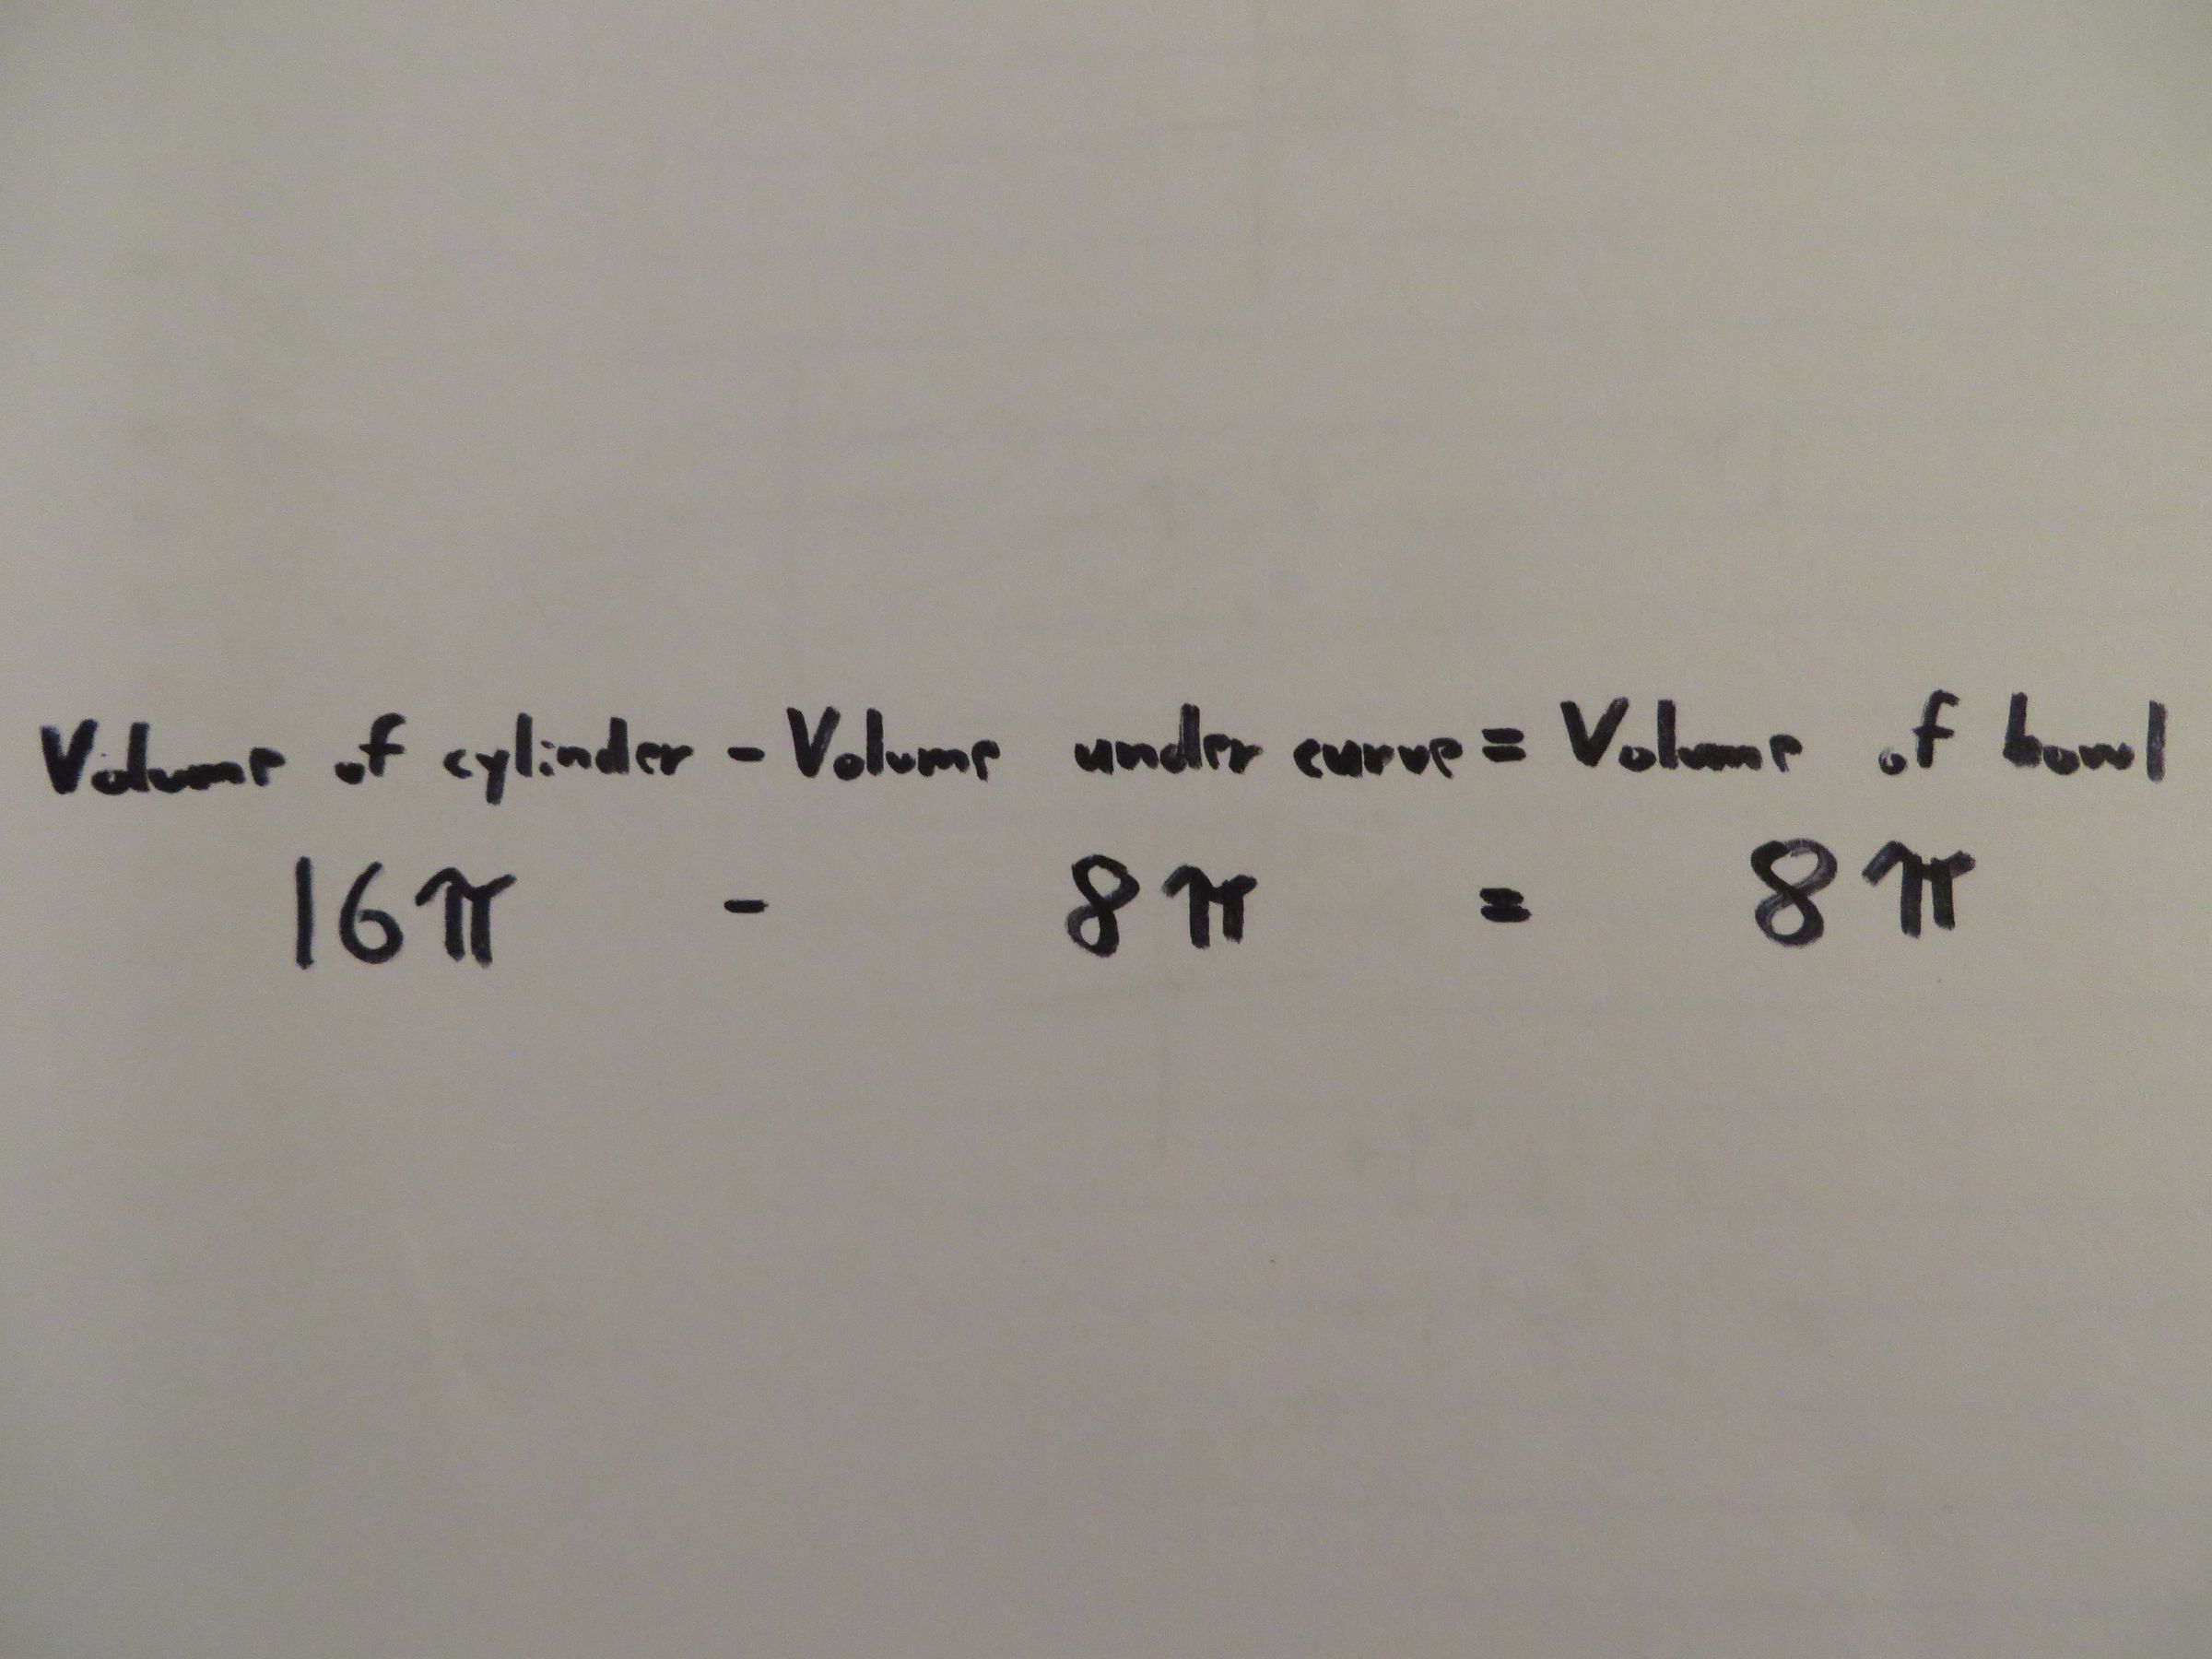 Volume of cylinder - Volume under curve = Volume of bowl
16π - 8π = 8π